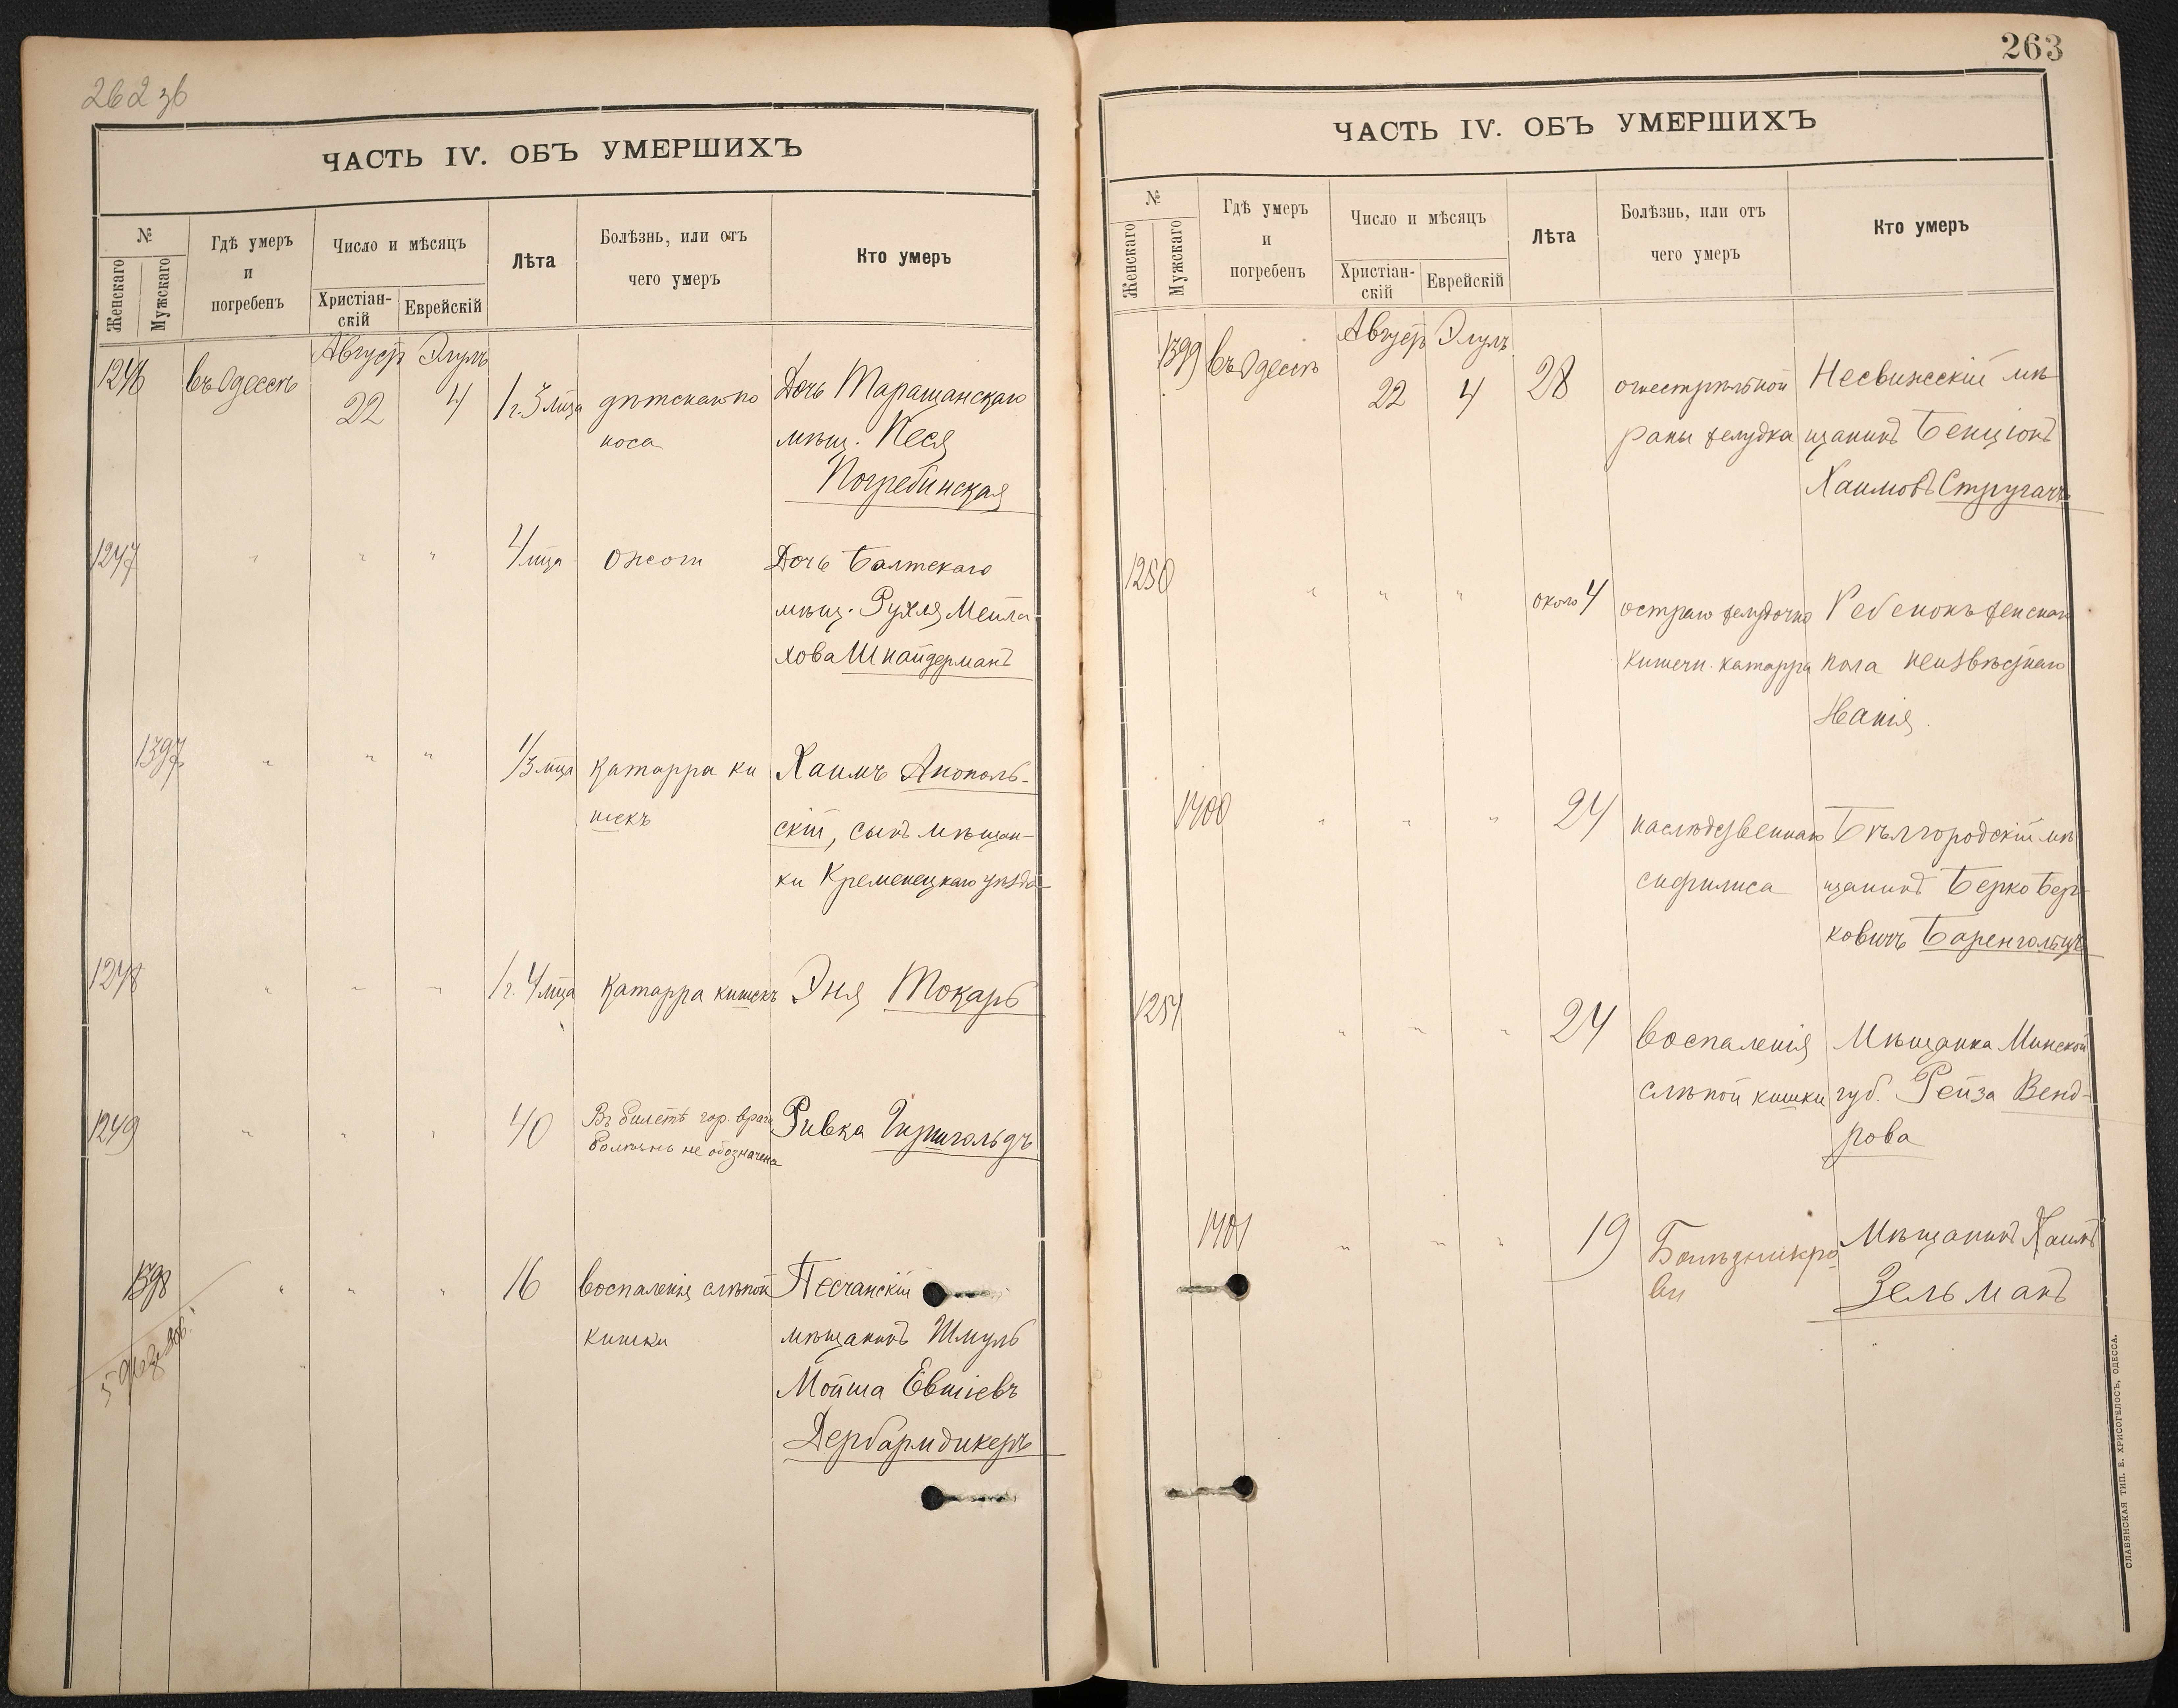 262 зв
ЧАСТЬ IV. ОБЪ УМЕРШИХЪ
№
Женскаго
Мужскаго
Гдѣ умеръ
и
погребенъ
Число и мѣсяцъ
Христіан-
скій
Еврейскій
Лѣта
Болѣзнь, или отъ
чего умеръ
Кто умеръ
Августъ Элулъ
1246 въ Одессѣ 22 4 1 г. 3 м̃ца дѣтскаго по Дочь Таращанскаго
носа мѣщ. Песя
Погребинская
1247 " " " 4 м̃ца Ожоги Дочь Балтскаго
мѣщ. Рухля Мейла
хова Шнайдерманъ
1397 " " " 1/3 м̃ца Катарра ки Хаимъ Анополь-
шекъ скій, сынъ мѣщан-
ки Кременецкаго уѣзда
1248 " " " 1 г. 4 м̃ца Катарра кишекъ Эня Токарь
1249 " " " 40 Въ билетѣ гор. врача Ривка
болѣзнь не обозначена
1398 " " " 16 воспаленія слѣпой Песчанскій
кишки мѣщанинъ Шмуль
Мойша Евшіевъ
Дербармдикеръ
263
ЧАСТЬ IV. ОБЪ УМЕРШИХЪ
№
Женскаго
Мужскаго
Гдѣ умеръ
и
погребенъ
Число и мѣсяцъ
Христіан-
скій
Еврейскій
Лѣта
Болѣзнь, или отъ
чего умеръ
Кто умеръ
Августъ Элулъ
1399 въ Одессѣ 22 4 28 огнестрѣльной Несвижскій мѣ
раны желудка щанинъ Бенціонъ
Хаимовъ Стругачъ
1250 " " " около 4 остраго желудочно Ребенокъ женскаго
кишечн. катарра пола неизвѣстнаго
званія.
1400 " " " 24 наслѣдственнаго Бѣлгородскій мѣ
сифилиса щанинъ Берко Бер-
ковичъ Баренгольцъ
1251 " " " 24 воспаленія Мѣщанка Минской
слѣпой кишки губ. Рейза Венд-
рова
1401 " " " 19 Болѣзни кро Мѣщанинъ Хаимъ
ви Зельманъ
СЛАВЯНСКАЯ ТИП. Е. ХРИСОГЕЛОСЪ, ОДЕССА.